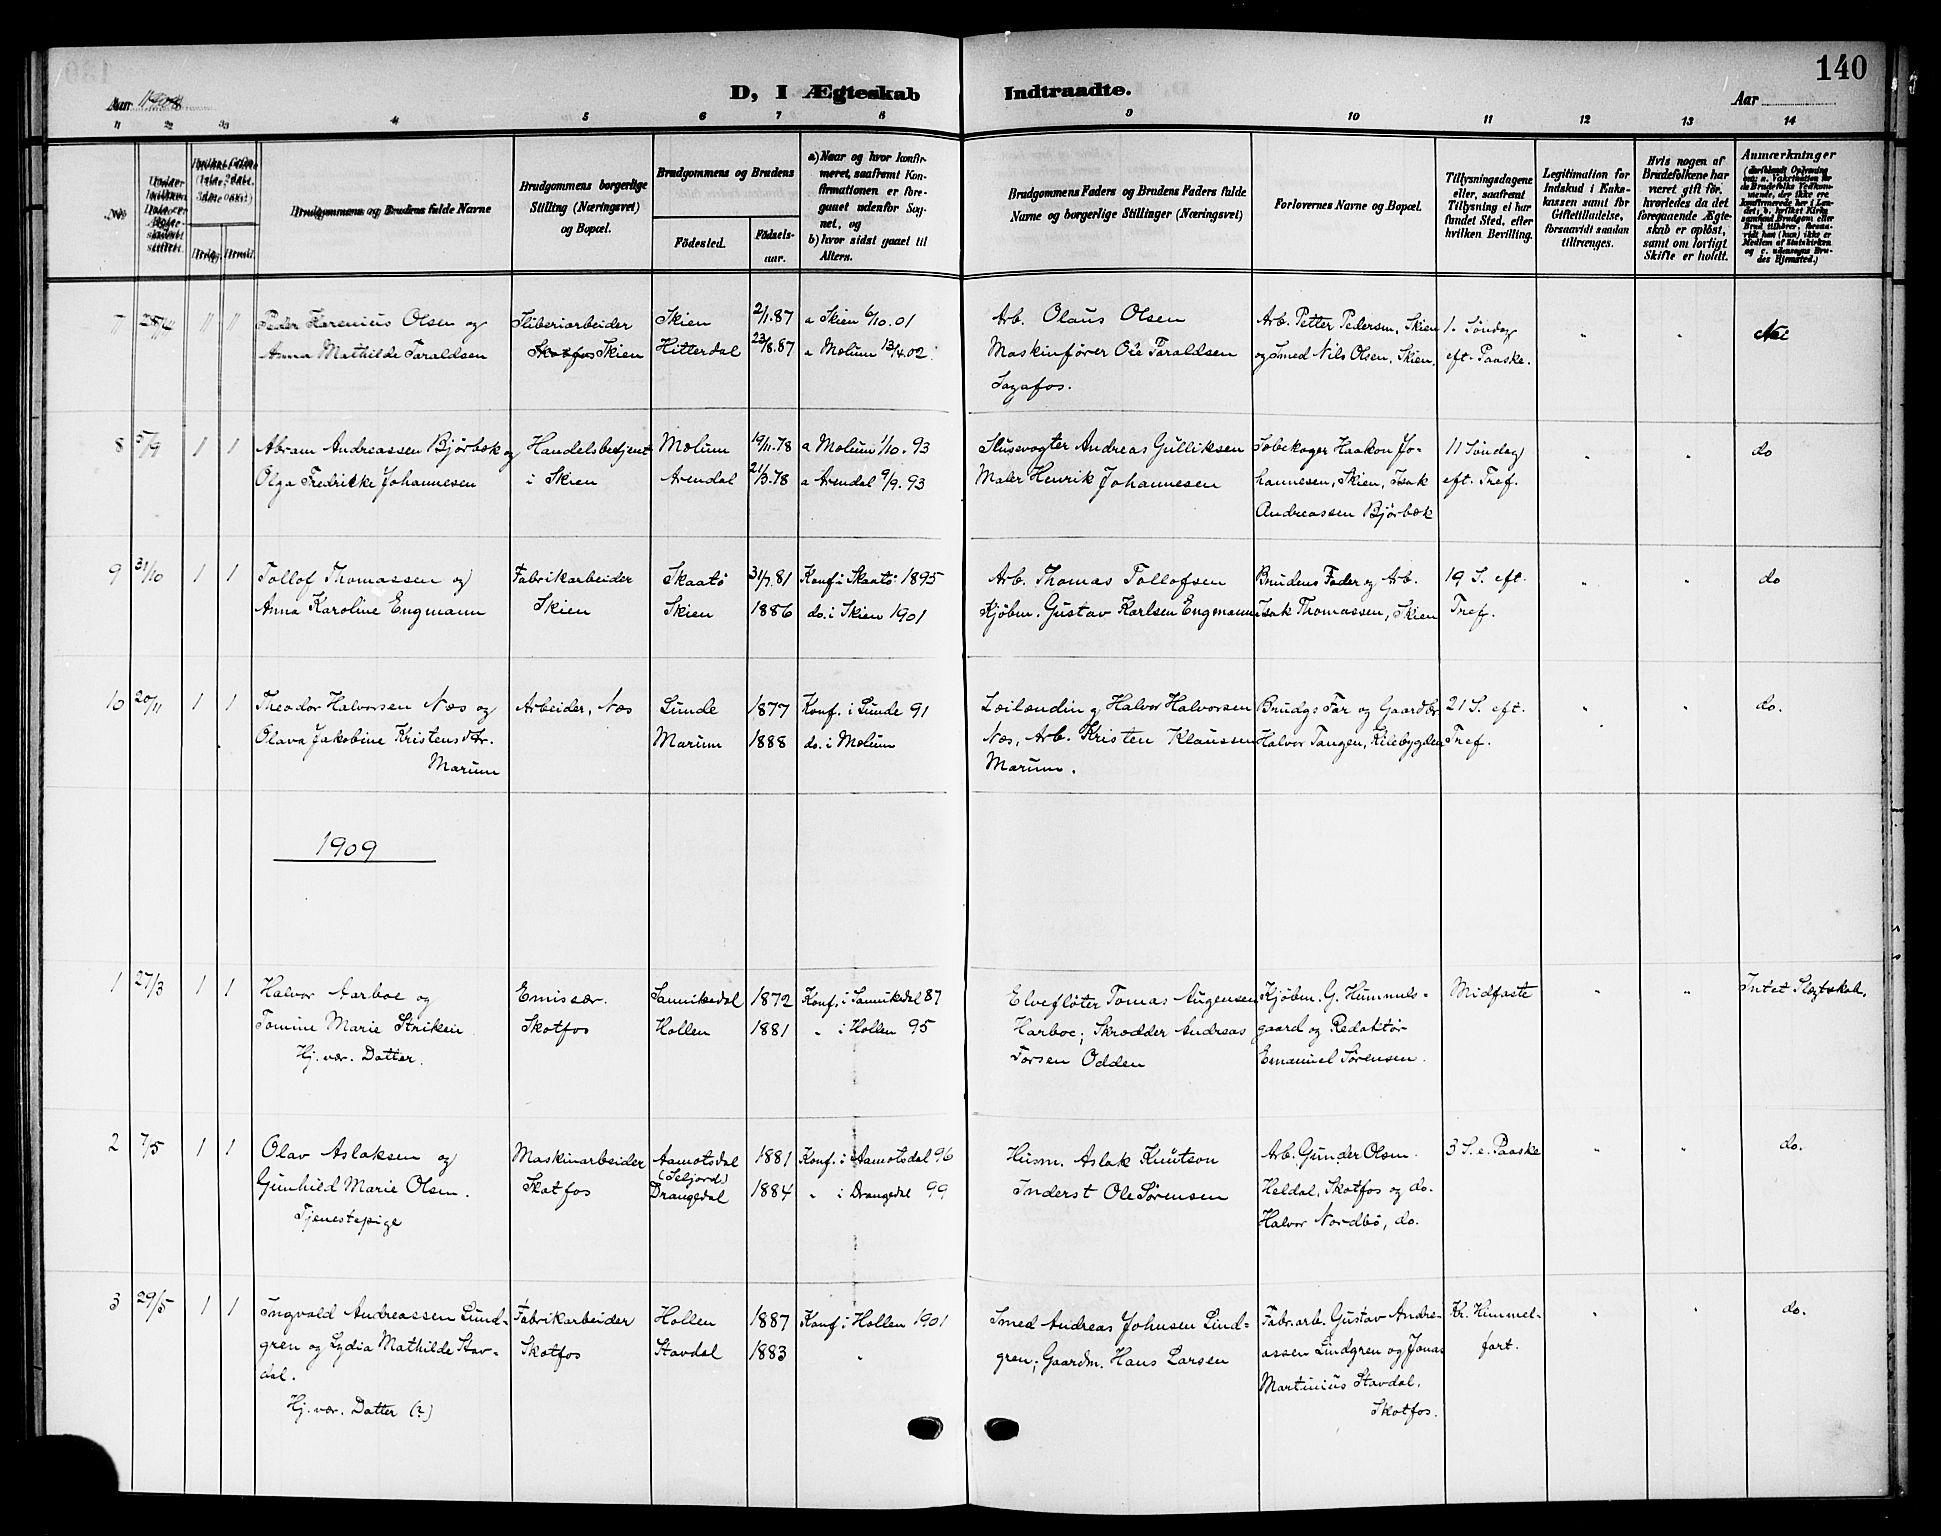 140
Aar 1908
D, I Ægteskab Indtraadte.
Aar
1 2 3 4 5 6 7 8 9 10 11 12 13 14
No
Brudgommens og Brudens fulde Navne
Brudgommens borgerlige
Stilling (Næringsvei)
og Bopæl.
Brudgommens og Brudens
Fødested.
Fødsels-
aar.
a) Naar og hvor konfir-
meret, saafremt Kon-
firmationen er fore-
gaaet udenfor Sog-
net, og
b) hvor sidst gaaet til
Alters.
Brudgommens Faders og Brudens Faders fulde
Navne og borgerlige Stillinger (Næringsvei)
Forlovernes Navne og Bopæl.
Tillysningsdagene
eller, saafremt
Tillysning ei har
fundet Sted, efter
hvilken Bevilling.
Legitimation for
Indskud i Enke-
kassen samt for
Giftetilladelse,
forsaavidt saadan
tiltrænges.
Hvis nogen af
Brudefolkene har
været gift før,
hvorledes da det
foregaaende Ægte-
skab er opløst,
samt om lovligt
Skifte er holdt.
Anmærkninger
7 1 1 Peder Karenius Olsen og Sliberiarbeider Skien 2/1.87 a Skien 6/10.01 Arb. Olaus Olsen Arb. Petter Pedersen, Skien 1. Søndag Nei
Anna Mathilde Taraldsen Skotfos Skien Hitterdal 23/8.87 a Mælum 13/4.02. Maskinfører Ole Taraldsen og Smed Nils Olsen, Skien. eft. Paaske.
Sagafos.
8 5/9 1 1 Abram Andreassen Bjørbæk og Handelsbetjent Mælum 19/11.78 a Mælum 1/10.93 Slusevogter Andreas Gulliksen Sæbekoger Haakon Jo- 11 Søndag do
Olga Fredrikke Johannesen i Skien Arendal 21/3.78 a Arendal 9/9.93 Maler Henrik Johannesen hannesen, Skien, Isak eft. Tref.
Andreassen Bjørbæk
9 31/10 1 1 Tollof Thomassen og Fabrikarbeider Skaatø 31/7.81 Konf. i Skaatø 1895 Arb. Thomas Tollofsen Brudens Fader og Arb. 19 S. eft. do
Anna Karoline Engmann Skien Skien 1886 do. i Skien 1901 Kjøbm. Gustav Karlsen Engmann Isak Thomassen, Skien Tref.
10 20/11 1 1 Theodor Halvorsen Næs og Arbeider, Næs Lunde 1877 Konf. i Lunde 91 Leilænding Halvor Halvorsen Brudgs Far og Gaardbr. 21 S. eft. do.
Olava Jakobine Kristensdtr. Marum 1888 do. i Mælum Næs, Arb. Kristen Klaussen Halvor Tangen, Kilebygden Tref.
Marum Marum.
1909
1 27/3 1 1 Halvor Aarboe og Emissær. Sannikedal 1872 Konf. i Sannikedal 87 Elvefløter Tomas Augensen Kjøbm. G. Himmels- Midfaste Intet Slægtskab.
Tomine Marie Striken Skotfos Hollen 1881 " i Hollen 95 Harboe; Skrædder Andreas gaard og Redaktør
Hj. vær. Datter. Torsen Odden Emanuel Sørensen.
2 7/5 1 1 Olav Aslaksen og Maskinarbeider Aamotsdal 1881 Konf. i Aamotsdal 96 Husm. Aslak Knutson Arb. Gunder Olsen 3 S. e. Paaske do.
(Seljord)
Gunhild Marie Olsen. Skotfos Drangedal 1884 " i Drangedal 99 Inderst Ole Sørensen Heldal, Skotfos og do.
Tjenestepige Halvor Nordbø, do.
3 29/5 1 1 Ingvald Andreassen Lind- Fabrikarbeider Hollen 1887 Konf. i Hollen 1901 Smed Andreas Johnsen Lind- Fabr.arb. Gustav Andre- Kr. Himmel- do.
gren og Lydia Mathilde Stav- Skotfos Stavdal 1883 " gren; Gaardm. Hans Larsen assen Lindgren og Jonas fart.
dal. Martinius Stavdal,
Hj. vær. Datter (?) Skotfos.